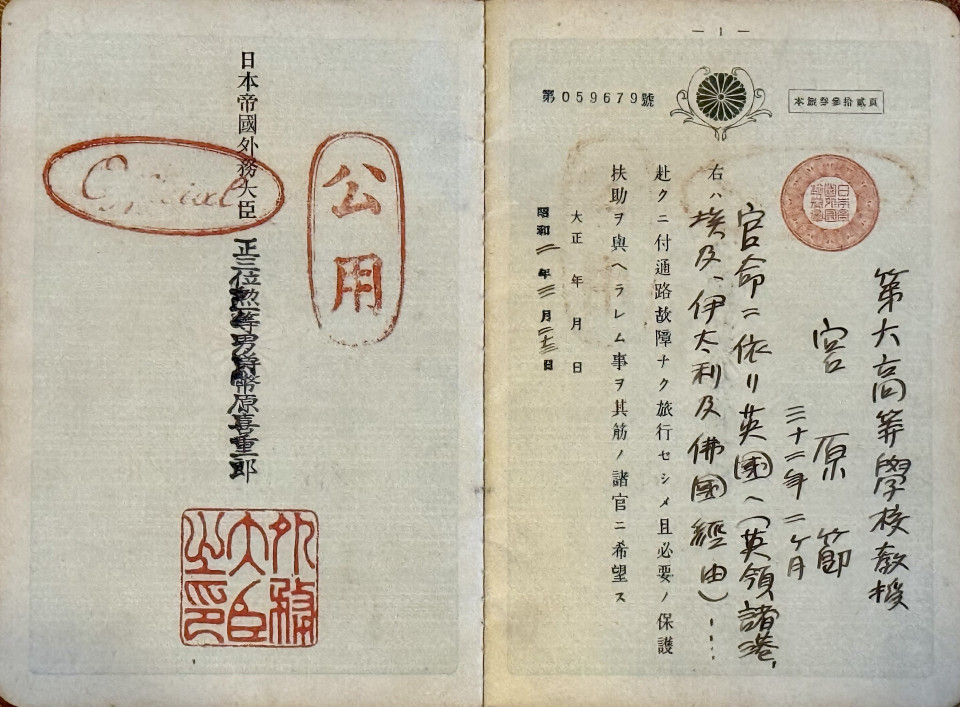 — 1 —
第059679號
本旅券參拾貳頁
第六高等學校教授
宮原 節
三十二年二ヶ月
官命ニ依リ英國へ(英領諸港、
右ハ埃及、伊太利及佛國經由)……
赴クニ付通路故障ナク旅行セシメ且必要ノ保護
扶助ヲ與ヘラレム事ヲ其筋ノ諸官ニ希望ス
大正 年 月 日
昭和二年三月二十三日
公用
Official
日本帝國外務大臣 正三位勲一等男爵幣原喜重郎
外務
大臣
之印